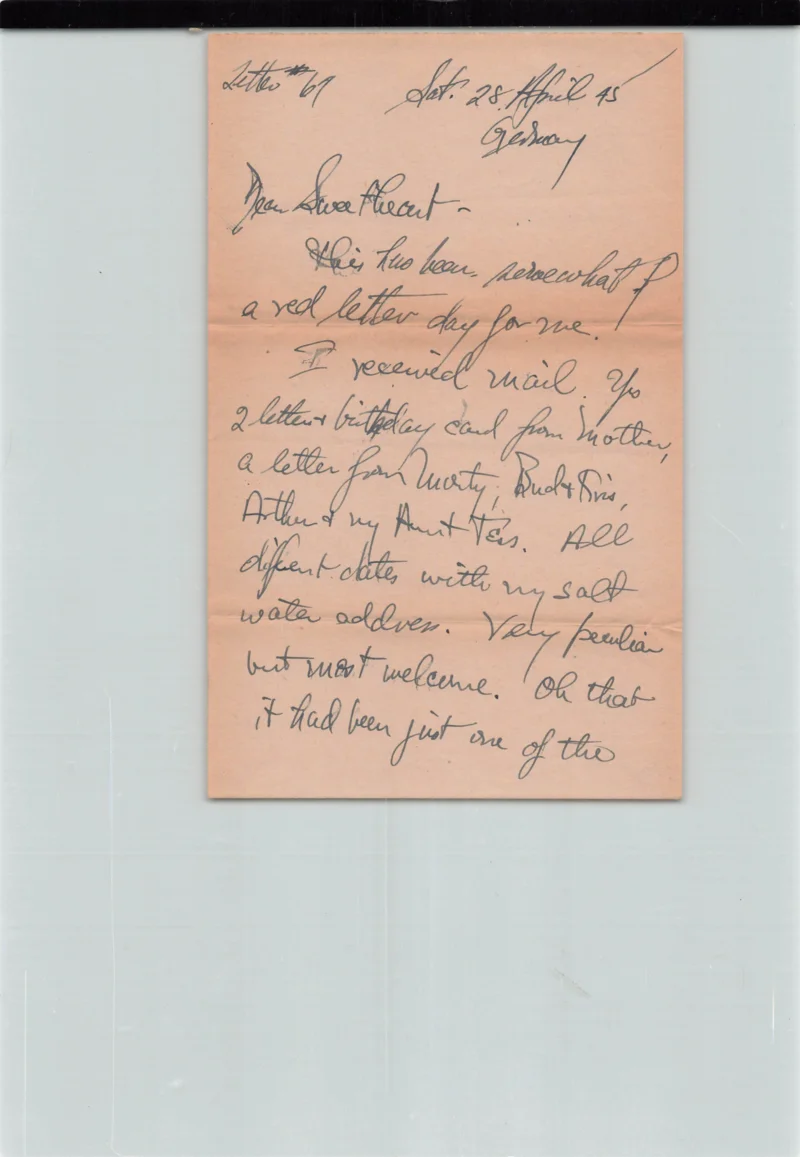 Letter # 67
Sat. 28 April 45
Germany
Dear Sweetheart -
This has been somewhat of
a red letter day for me.
I received mail. Yes
2 letters & birthday card from Mother,
a letter from Morty, Bud & Iris,
Arthur & my Aunt Tess. All
different dates with my salt
water address. Very peculiar
but most welcome. Oh that
it had been just one of the